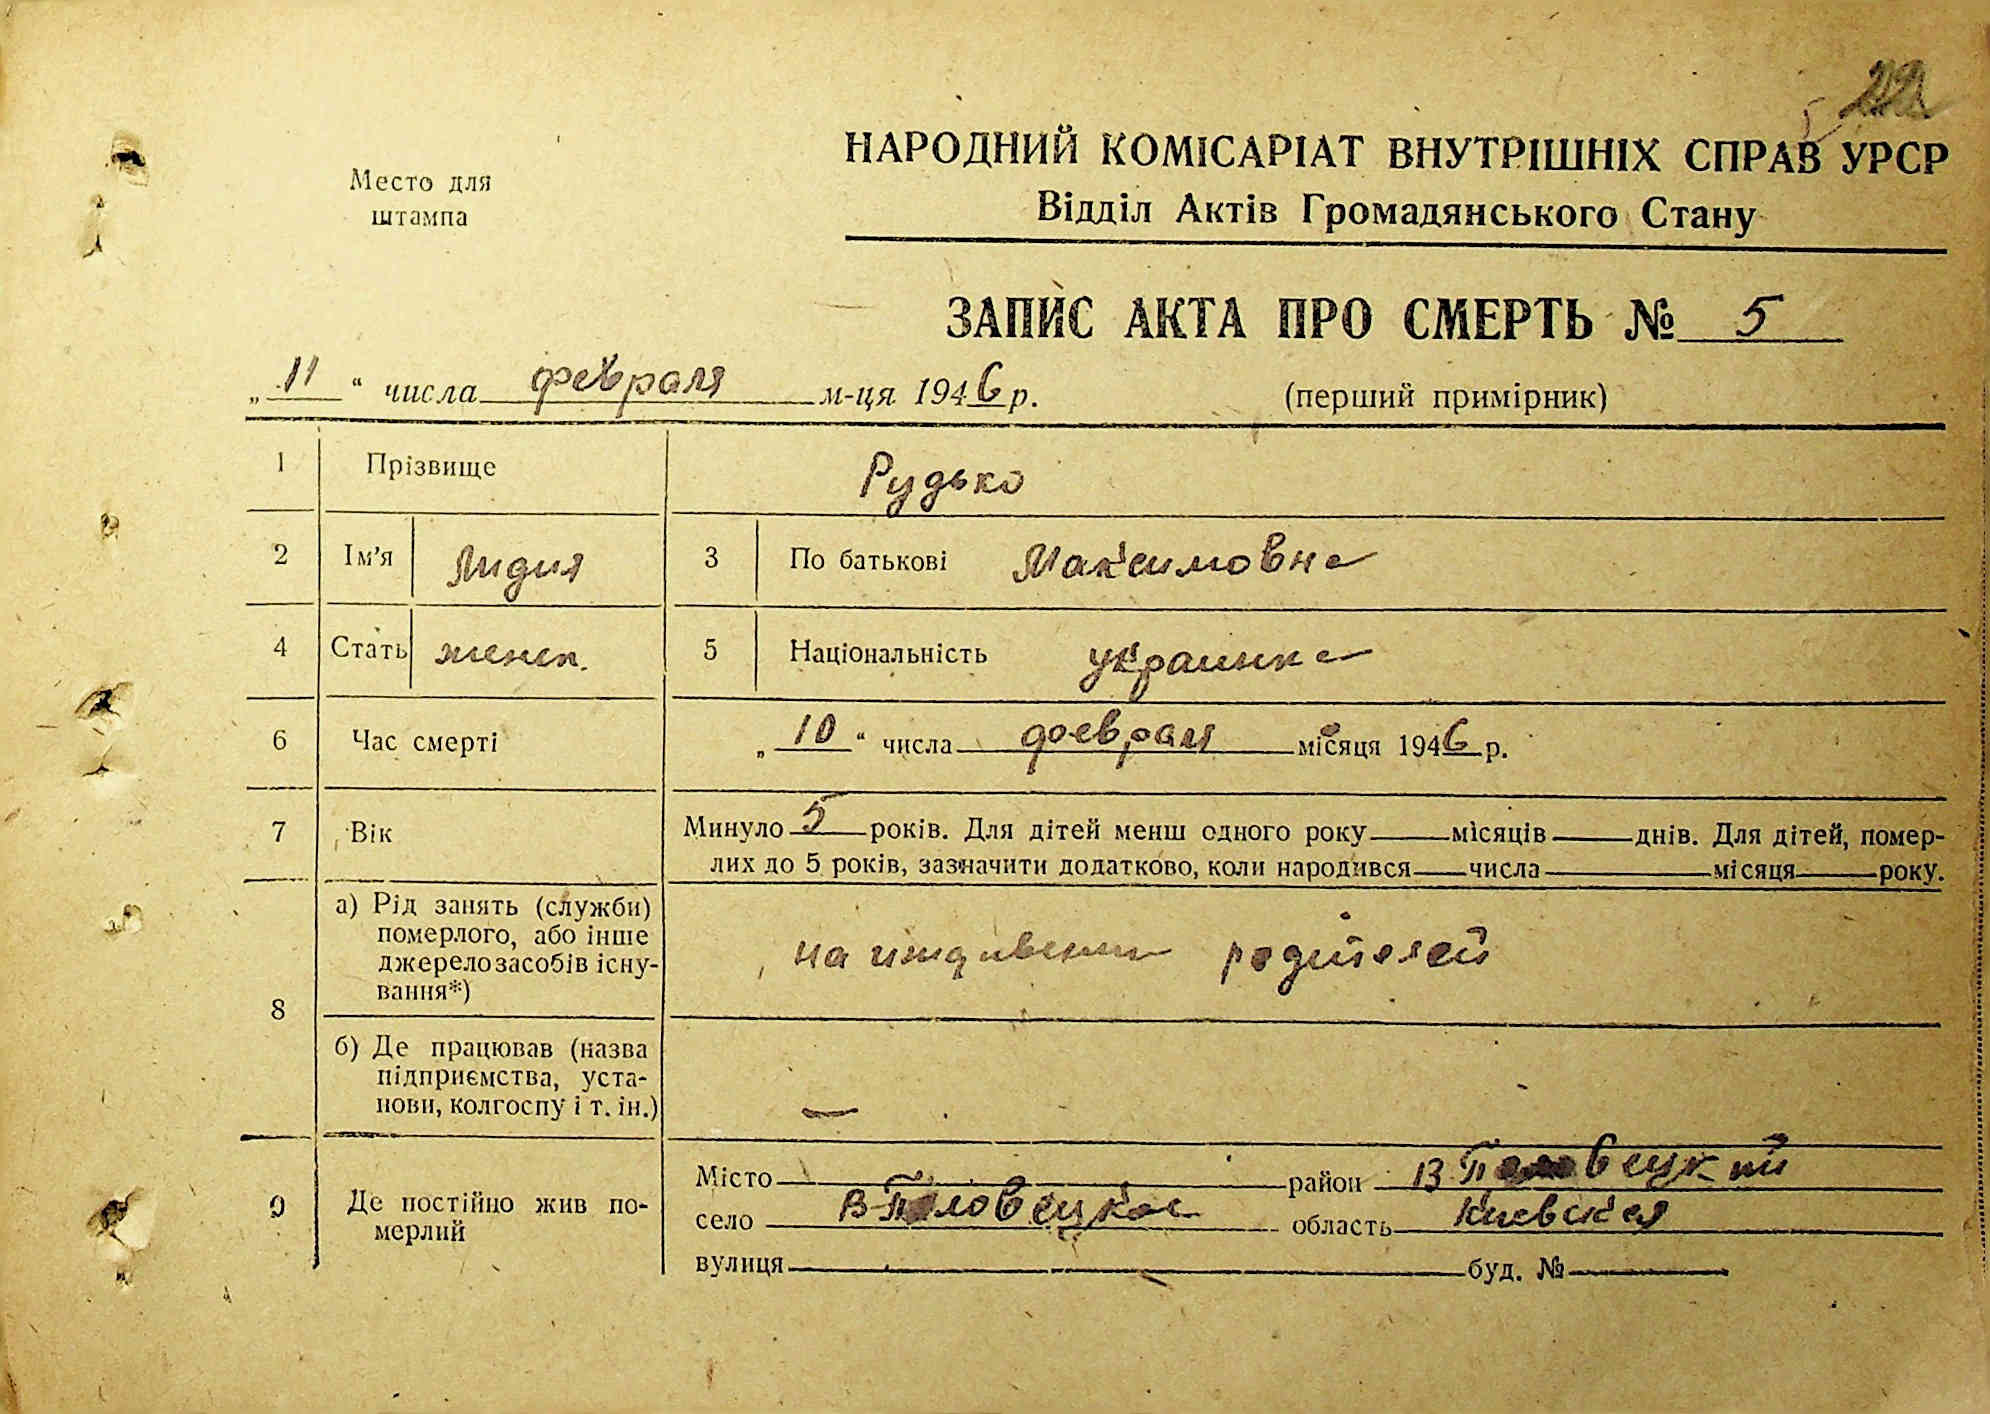 Место для
штампа
НАРОДНИЙ КОМІСАРІАТ ВНУТРІШНІХ СПРАВ УРСР
Відділ Актів Громадянського Стану
ЗАПИС АКТА ПРО СМЕРТЬ № 5
„11“ числа февраля м-ця 1946 р.
(перший примірник)
1 Прізвище Рудько
2 Ім'я Лидия 3 По батькові Максимовна
4 Стать женск. 5 Національність украинка
6 Час смерті „10“ числа февраля місяця 1946 р.
7 Вік Минуло 5 років. Для дітей менш одного року місяців днів. Для дітей, помер-
лих до 5 років, зазначити додатково, коли народився числа місяця року.
8 а) Рід занять (служби)
померлого, або інше
джерело засобів існу-
вання*)
на иждивении родителей
б) Де працював (назва
підприємства, уста-
нови, колгоспу і т. ін.)
—
9 Де постійно жив по-
мерлий
Місто район В Половецкий
село В-Половецкое область Киевская
вулиця буд. №